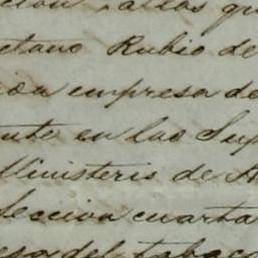 etano Rubio de
empresa de
nte en las Sup
Ministerio de
Seccion cuarta
esa del tabaco